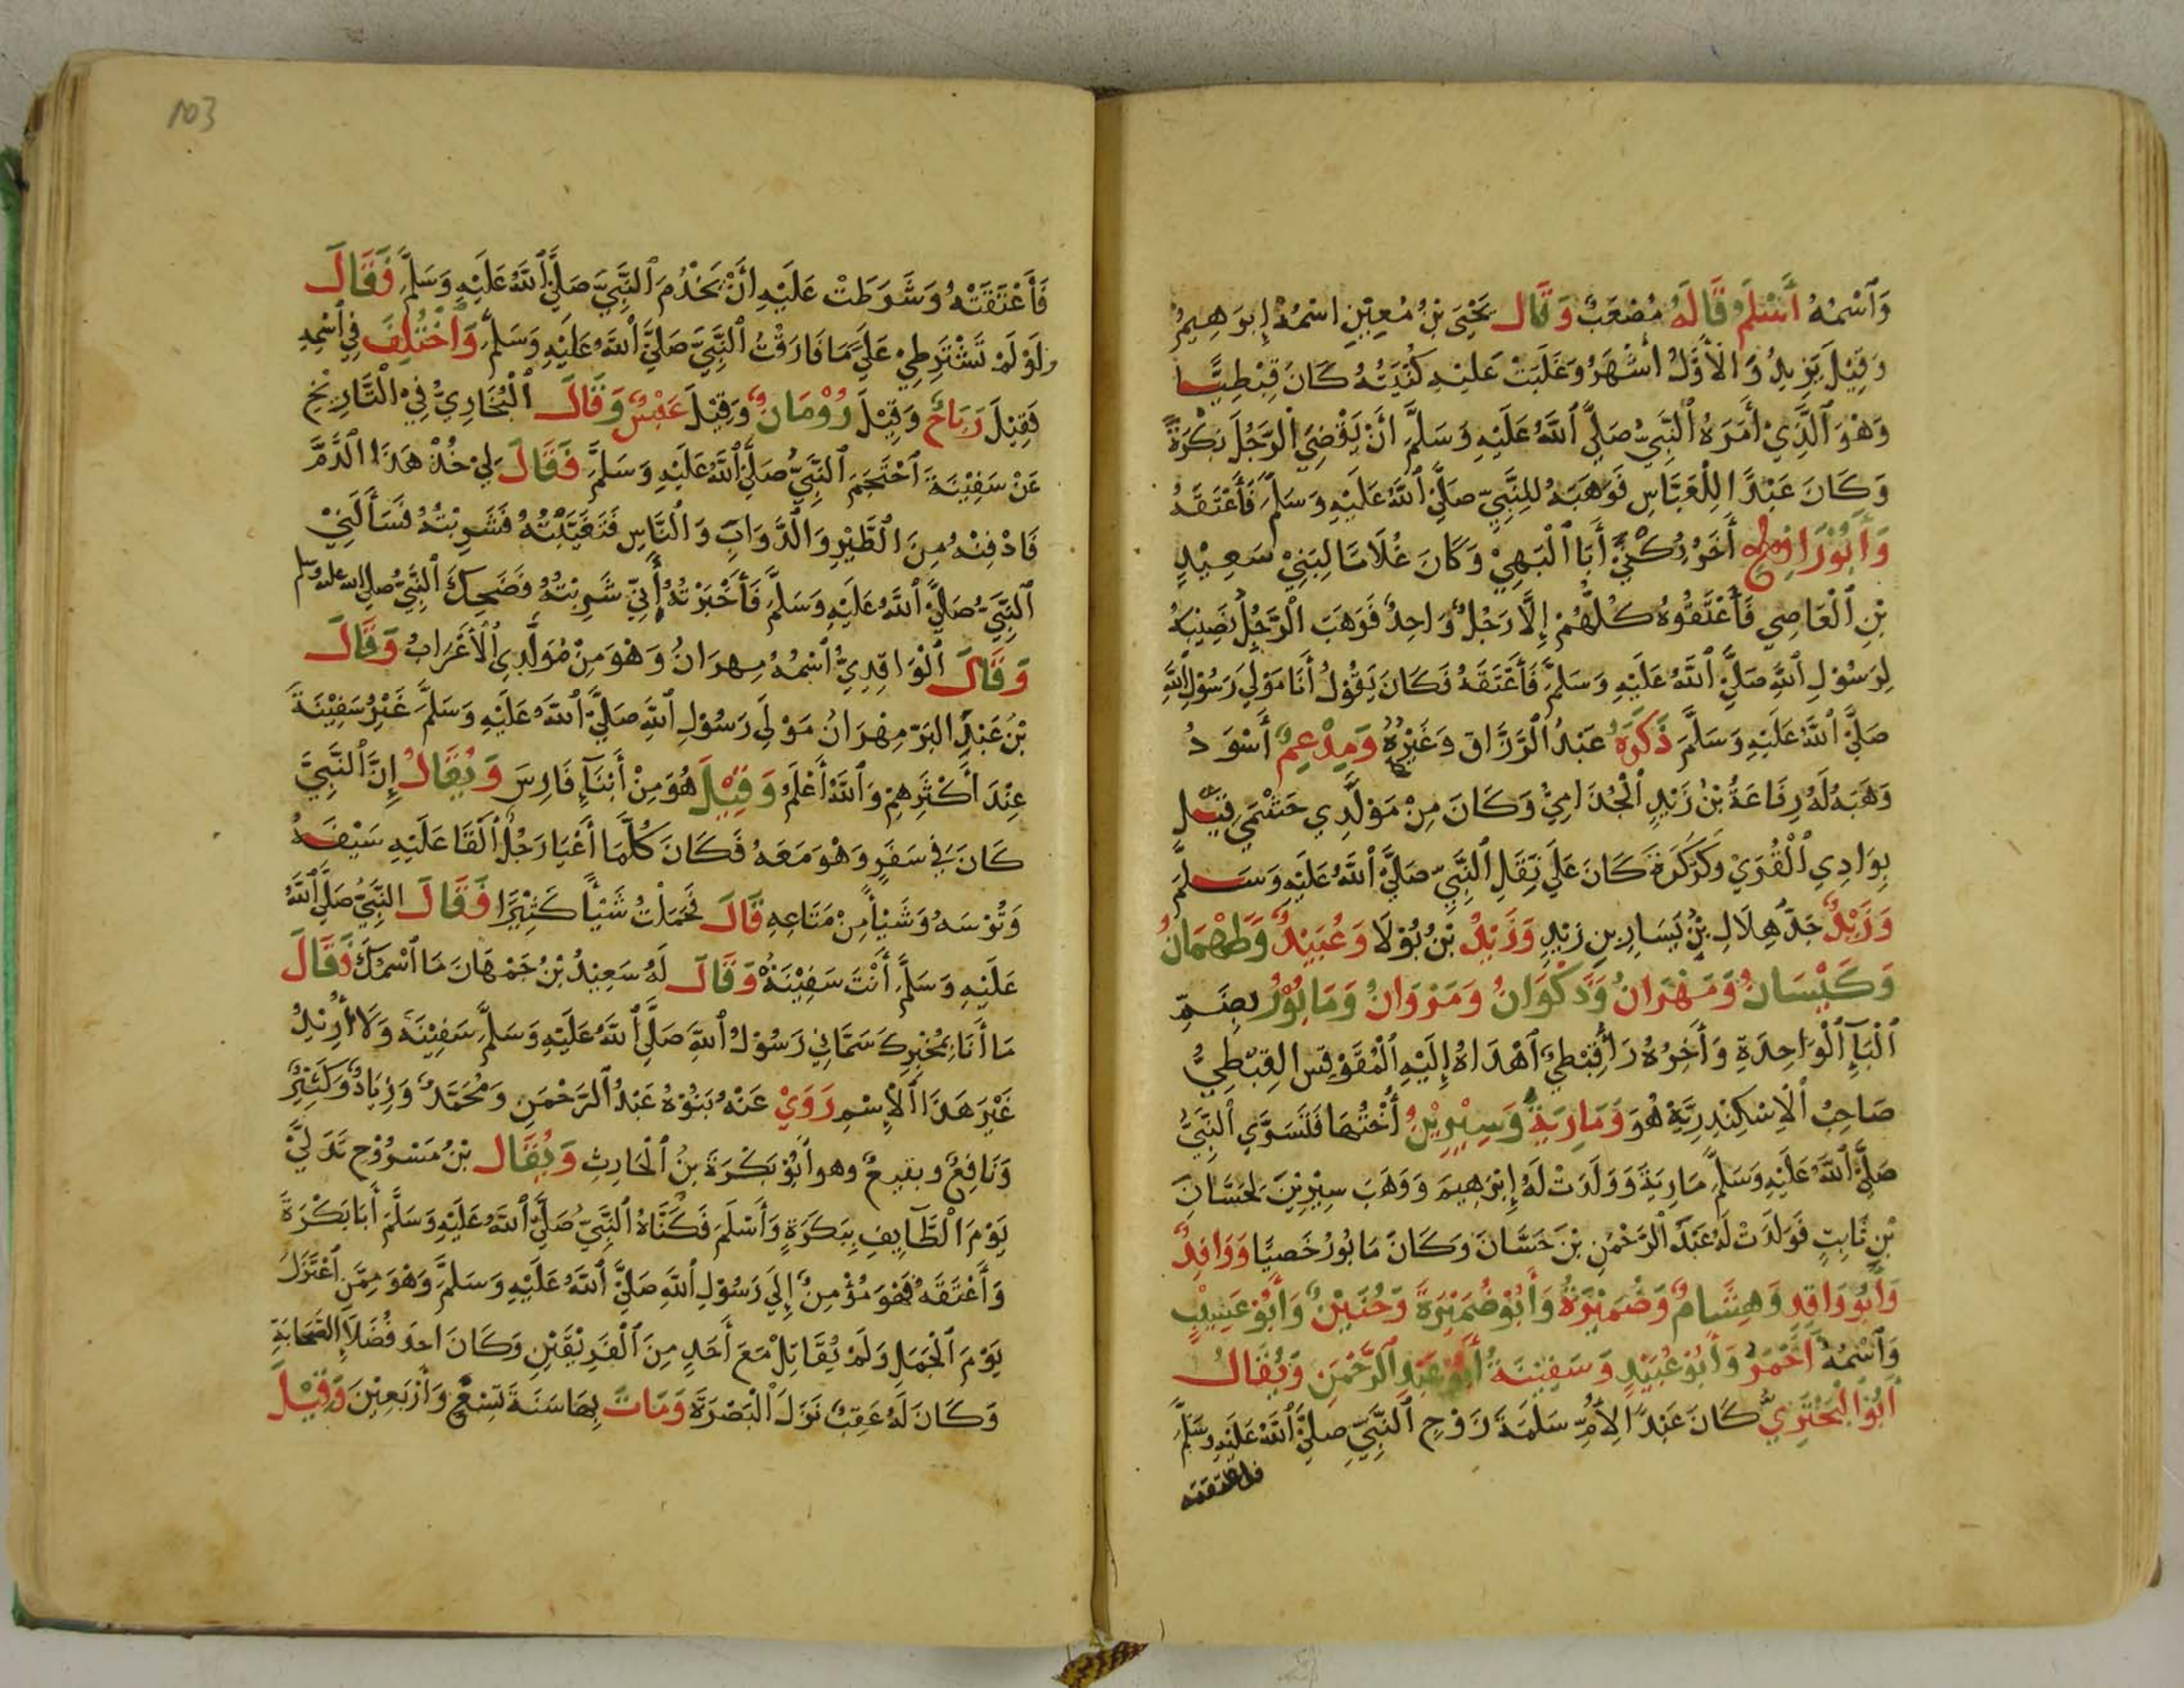 وَٱسْمُهُ أَسْلَمُ قَالَهُ مُصْعَبٌ وَقَالَ يَحْيَى بْنُ مُعِيْنٍ اسْمُهُ إِبرَهِيمُ
وَقِيْلَ يَزِيدُ وَالْأَوَّلُ أَشْهَرُ وَغَلَبَتْ عَلَيْهِ كُنْيَتُهُ كَانَ قِبْطِيًّا
وَهْوَ ٱلَّذِيْ أَمَرَهُ ٱلنَّبِيُّ صَلَّىْ ٱللَّهُ عَلَيْهِ وَسَلَّمَ أَنْ يَقْضِيَ ٱلرَّجُلَ بَكْرَةً
وَكَانَ عَبْدًا لِلْعَبَّاسِ فَوَهَبَهُ لِلنَّبِيِّ صَلَّىْ ٱللَّهُ عَلَيْهِ وَسَلَّمَ فَأَعْتَقَهُ
وَأَبُوْ رَافِعٍ أَخَرُ يُكْنَىْ أَبَا ٱلْبَهِيْ وَكَانَ غُلَامًا لِبَنِيْ سَعِيْدٍ
بْنِ ٱلْعَاصِي فَأَعْتَقُوْهُ كُلُّهُمْ إِلَّا رَجُلٌ وَاحِدٌ فَوَهَبَ ٱلرَّجُلُ نَصِيْبَهُ
لِرَسُوْلِ ٱللَّهِ صَلَّىْ ٱللَّهُ عَلَيْهِ وَسَلَّمَ فَأَعْتَقَهُ فَكَانَ يَقُوْلُ أَنَا مَوْلَى رَسُوْلِ ٱللَّهِ
صَلَّىْ ٱللَّهُ عَلَيْهِ وَسَلَّمَ ذَكَرَهُ عَبْدُ ٱلرَّزَّاقِ وَغَيْرُهُ وَمِدْعِمٌ أَسْوَدُ
وَهَبَهُ لَهُ رِفَاعَةُ بْنُ زَيْدٍ ٱلْجُذَامِيُّ وَكَانَ مِنْ مَوْلَّدِي حَسْمَى قُتِلَ
بِوَادِي ٱلْقُرَىْ وَكَرْكَرَةَ كَانَ عَلَى ثِقَلِ ٱلنَّبِيِّ صَلَّىْ ٱللَّهُ عَلَيْهِ وَسَلَّمَ
وَزَيْدٌ جَدُّ هِلَالِ بْنِ يَسَارِ بنِ زَيْدٍ وَزَيْدُ بْنُ بُوْلَا وَعُبَيْدٌ وَطَهْمَانُ
وَكَيْسَانُ وَمَهْرَانُ وَذَكْوَانُ وَمَرْوَانُ وَمَابُوْرُ بِضَمِّ
ٱلْبَآءِ ٱلْوَاحِدَةِ وَأَخَرُهُ رَأْ قِبْطِيٌّ أَهْدَاهُ إِلَيْهِ ٱلْمُقَوْقِسُ القِبْطِيُّ
صَاحِبُ ٱلْإِسْكِنْدِرِيَّةِ هُوَ وَمَارِيَةُ وَسِيْرِيْنُ أُخْتُهَا فَتَسَرَّى ٱلنَّبِيُّ
صَلَّىْ ٱللَّهُ عَلَيْهِ وَسَلَّمَ مَارِيَةَ وَوَلَدَتْ لَهُ إِبْرَهِيمَ وَوَهَبَ سِيْرِيْنَ لِحَسَّانَ
بْنِ ثَابِتٍ فَوَلَدَتْ لَهُ عَبْدَ ٱلرَّحْمٰنِ بْنَ حَسَّانَ وَكَانَ مَابُورُ خَصِيًّا وَوَاقِدٌ
وَأَبُوْ وَاقِدٍ وَهِشَامٌ وَضُمَيْرَةُ وَأَبُوْ ضُمَيْرَةَ وَحُنَيْنٌ وَأَبُوْ عَسِيْبٍ
وَٱسْمُهُ أَحْمَرُ وَأَبُوْ عُبَيْدٍ وَسَفِيْنَةُ أَبُوْ عَبْدِ ٱلرَّحْمٰنِ وَيُقَالُ
أَبُوْ ٱلْبَخْتَرِيِّ كَانَ عَبْدًا لِأُمِّ سَلَمَةَ زَوْجِ ٱلنَّبِيِّ صَلَّىْ ٱللَّهُ عَلَيْهِ وَسَلَّمَ
فاعتقته
103
فَأَعْتَقَتْهُ وَشَرَطَتْ عَلَيْهِ أَنْ يَخْدُمَ ٱلنَّبِيَّ صَلَّىْ ٱللَّهُ عَلَيْهِ وَسَلَّمَ فَقَالَ
وَلَوْ لَمْ تَشْتَرِطِيْ عَلَيَّ مَا فَارَقْتُ ٱلنَّبِيَّ صَلَّىْ ٱللَّهُ عَلَيْهِ وَسَلَّمَ وَٱخْتُلِفَ فِيْ ٱسْمِهِ
فَقِيْلَ رَبَاحٌ وَقِيْلَ رُوْمَانُ وَقِيْلَ عَبْسٌ وَقَالَ ٱلْبُخَارِيُّ فِيْ ٱلتَّارِيْخِ
عَنْ سَفِيْنَةَ ٱحْتَجَمَ ٱلنَّبِيُّ صَلَّىْ ٱللَّهُ عَلَيْهِ وَسَلَّمَ فَقَالَ لِيْ خُذْ هَذَا ٱلدَّمَّ
فَادْفِنْهُ مِنَ ٱلطَّيْرِ وَٱلدَّوَابِّ وَٱلنَّاسِ فَتَغَيَّبْتُهُ فَشَرِبْتُهُ فَسَأَلَنِيْ
ٱلنَّبِيُّ صَلَّىْ ٱللَّهُ عَلَيْهِ وَسَلَّمَ فَأَخْبَرْتُهُ أَنِّيْ شَرِبْتُهُ فَضَحِكَ ٱلنَّبِيُّ صلى الله عليه وسلم
وَقَالَ ٱلْوَاقِدِيُّ ٱسْمُهُ مِهرَانُ وَهْوَ مِنْ مُوَلَّدِي ٱلْأَعْرَابِ وَقَالَ
بْنُ عَبْدِ البَرِّ مِهْرَانُ مَوْلَى رَسُوْلِ ٱللَّهِ صَلَّىْ ٱللَّهُ عَلَيْهِ وَسَلَّمَ غَيْرُ سَفِيْنَةَ
عِنْدَ أَكْثَرِهِمْ وَٱللَّهُ أَعْلَمُ وَقِيْلَ هُوَ مِنْ أَبْنَآءِ فَارِسَ وَيُقَالُ إِنَّ ٱلنَّبِيَّ
كَانَ فِيْ سَفَرٍ وَهْوَ مَعَهُ فَكَانَ كُلَّمَا أَعْيَا رَجُلٌ أَلْقَا عَلَيْهِ سَيْفَهُ
وَتُرْسَهُ وَشَيْأً مِنْ مَتَاعِهِ قَالَ فَحَمَلْتُ شَيْأً كَثِيْرًا فَقَالَ النَّبِيُّ صَلَّىْ ٱللَّهُ
عَلَيْهِ وَسَلَّمَ أَنْتَ سَفِيْنَةُ وَقَالَ لَهُ سَعِيْدُ بْنُ جَمْهَانَ مَا ٱسْمُكَ فَقَالَ
مَا أَنَا بِمُخْبِرِكَ سَمَّانِيْ رَسُوْلُ ٱللَّهِ صَلَّىْ ٱللَّهُ عَلَيْهِ وَسَلَّمَ سَفِيْنَةَ وَلَا أُرِيْدُ
غَيْرَ هَذَا ٱلْإِسْمِ رَوَىْ عَنْهُ بَنُوْهُ عَبْدُ ٱلرَّحْمٰنِ وَمُحَمَّدٌ وَزِيَادٌ وَكَثِيْرٌ
وَنَافِعٌ وبقيعٌ وهو أَبُوْ بَكْرَةَ بنُ ٱلْحَارِثِ وَيُقَالُ بْنُ مَسْرُوْحٍ تَدَلَّىْ
يَوْمَ ٱلطَّآئِفِ بِبَكَرَةٍ وَأَسْلَمَ فَكَنَّاهُ ٱلنَّبِيُّ صَلَّىْ ٱللَّهُ عَلَيْهِ وَسَلَّمَ أَبَا بَكْرَةَ
وَأَعْتَقَهُ فَهْوَ مُؤْمِنٌ إِلَى رَسُوْلِ ٱللَّهِ صَلَّىْ ٱللَّهُ عَلَيْهِ وَسَلَّمَ وَهْوَ مِمَّنِ ٱعْتَزَلَ
يَوْمَ ٱلْجَمَلِ وَلَمْ يُقَاتِلْ مَعَ أَحَدٍ مِنَ ٱلْفَرِيْقَيْنِ وَكَانَ احدَ فُضَلَآءِ الصَّحَابَةِ
وَكَانَ لَهُ عَقِبٌ نَزَلَ ٱلْبَصْرَةَ وَمَاتَ بِهَا سَنَةَ تِسْعٍ وَأَرْبَعِيْنَ وَقِيْلَ